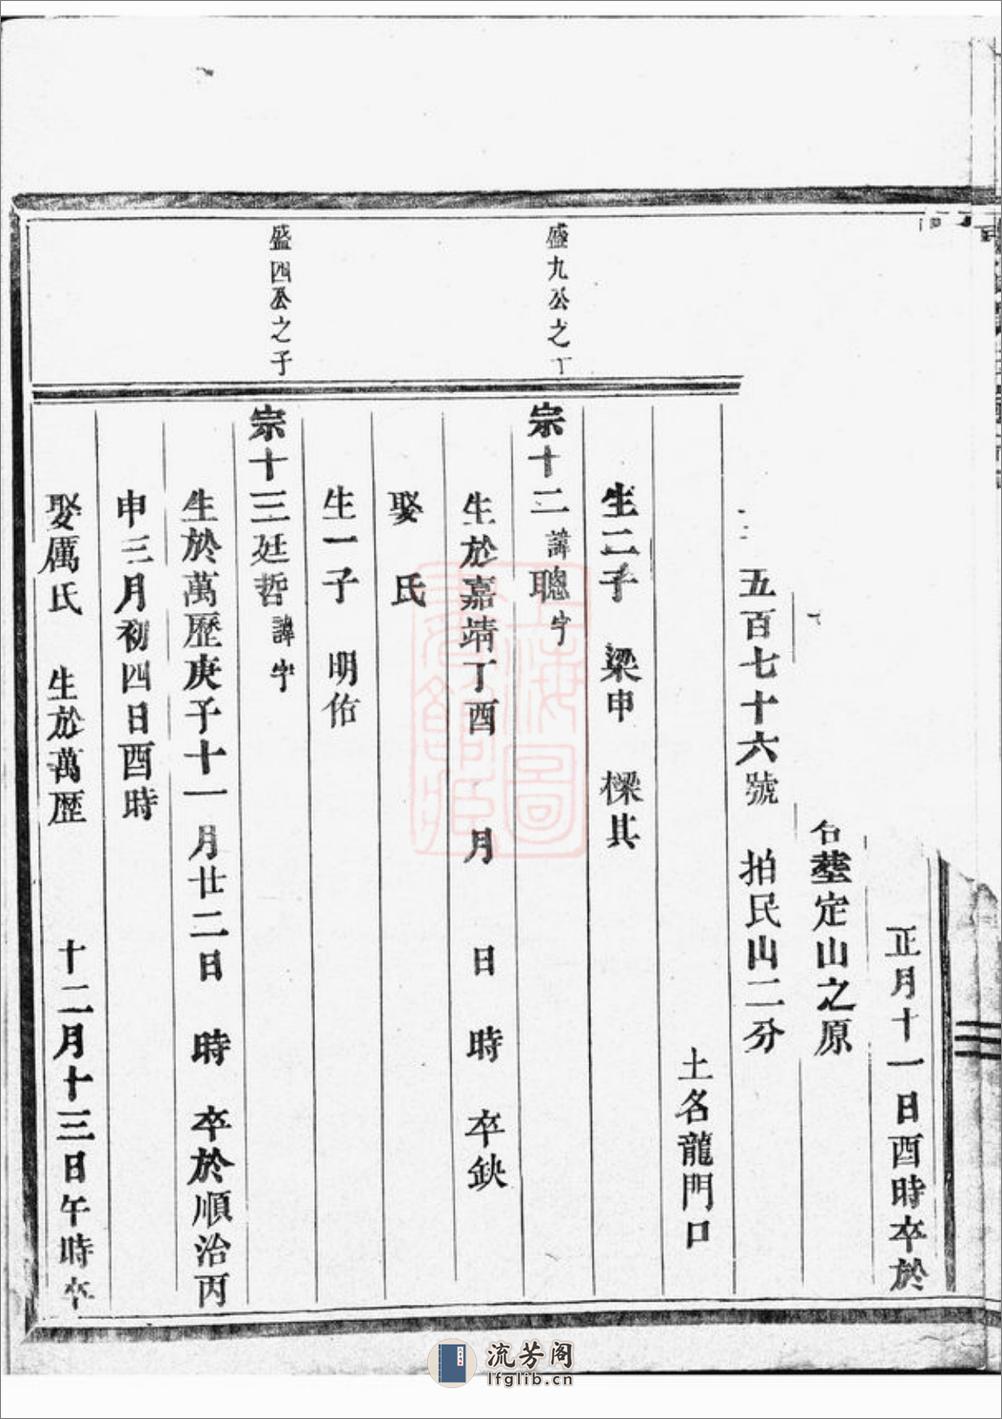 正月十一日酉時卒於
合塟定山之原
五百七十六號 拍民山二分
土名龍門口
生二子 梁申 樑其
盛九公之
宗十二諱聰字
生於嘉靖丁酉 月 日 時 卒缺
娶 氏
生一子 明佑
盛四公之子
宗十三廷哲諱字
生於萬歷庚子十一月廿二日 時 卒於順治丙
申三月初四日酉時
娶厲氏 生於萬歷 十二月十三日午時卒
上海圖書館藏
流芳阁
lfglib.cn